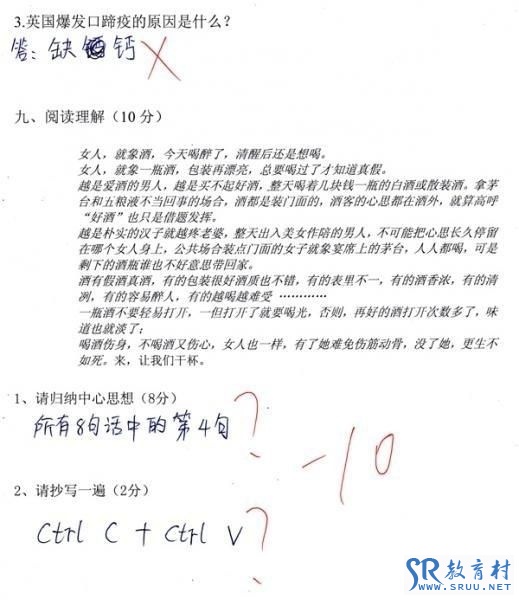 3.英国爆发口蹄疫的原因是什么?
答：缺钙
九、阅读理解（10 分）
女人，就象酒，今天喝醉了，清醒后还是想喝。
女人，就象一瓶酒，包装再漂亮，总要喝过了才知道真假。
越是爱酒的男人，越是买不起好酒，整天喝着几块钱一瓶的白酒或散装酒。拿茅
台和五粮液不当回事的场合，酒都是装门面的，酒客的心思都在酒外，就算高呼
“好酒”也只是借题发挥。
越是朴实的汉子就越疼老婆，整天出入美女作陪的男人，不可能把心思长久停留
在哪个女人身上，公共场合装点门面的女子就象宴席上的茅台，人人都喝，可是
剩下的酒瓶谁也不好意思带回家。
酒有假酒真酒，有的包装很好酒质也不错，有的表里不一，有的酒香浓，有的清
冽，有的容易醉人，有的越喝越难受 …………
一瓶酒不要轻易打开，一但打开了就要喝光，否则，再好的酒打开次数多了，味
道也就淡了；
喝酒伤身，不喝酒又伤心，女人也一样，有了她难免伤筋动骨，没了她，更生不
如死。来，让我们干杯。
1、请归纳中心思想（8分）
所有8句话中的第4句 ?
-10
2、请抄写一遍（2分）
Ctrl C + Ctrl V ?
SR教育村
WWW.SRUU.NET